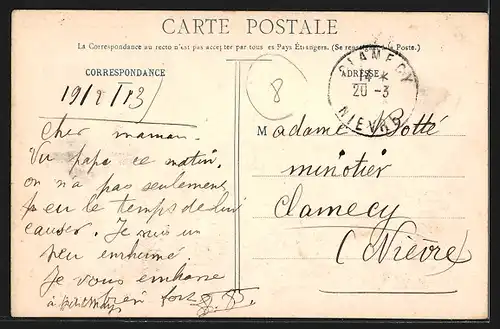 CARTE POSTALE
La Correspondance au recto n'est pas acceptée par tous les Pays Étrangers. (Se renseigner à la Poste.)
CORRESPONDANCE
ADRESSE
CLAMECY
20 - 3
NIEVRE
8
Cher maman.
Vu papa ce matin.
on n'a pas seulement
eu le temps de lui
causer. Je suis un
peu enrhumé.
Je vous embrasse
bien fort
Madame Botté
minotier
Clamecy
(Nièvre)